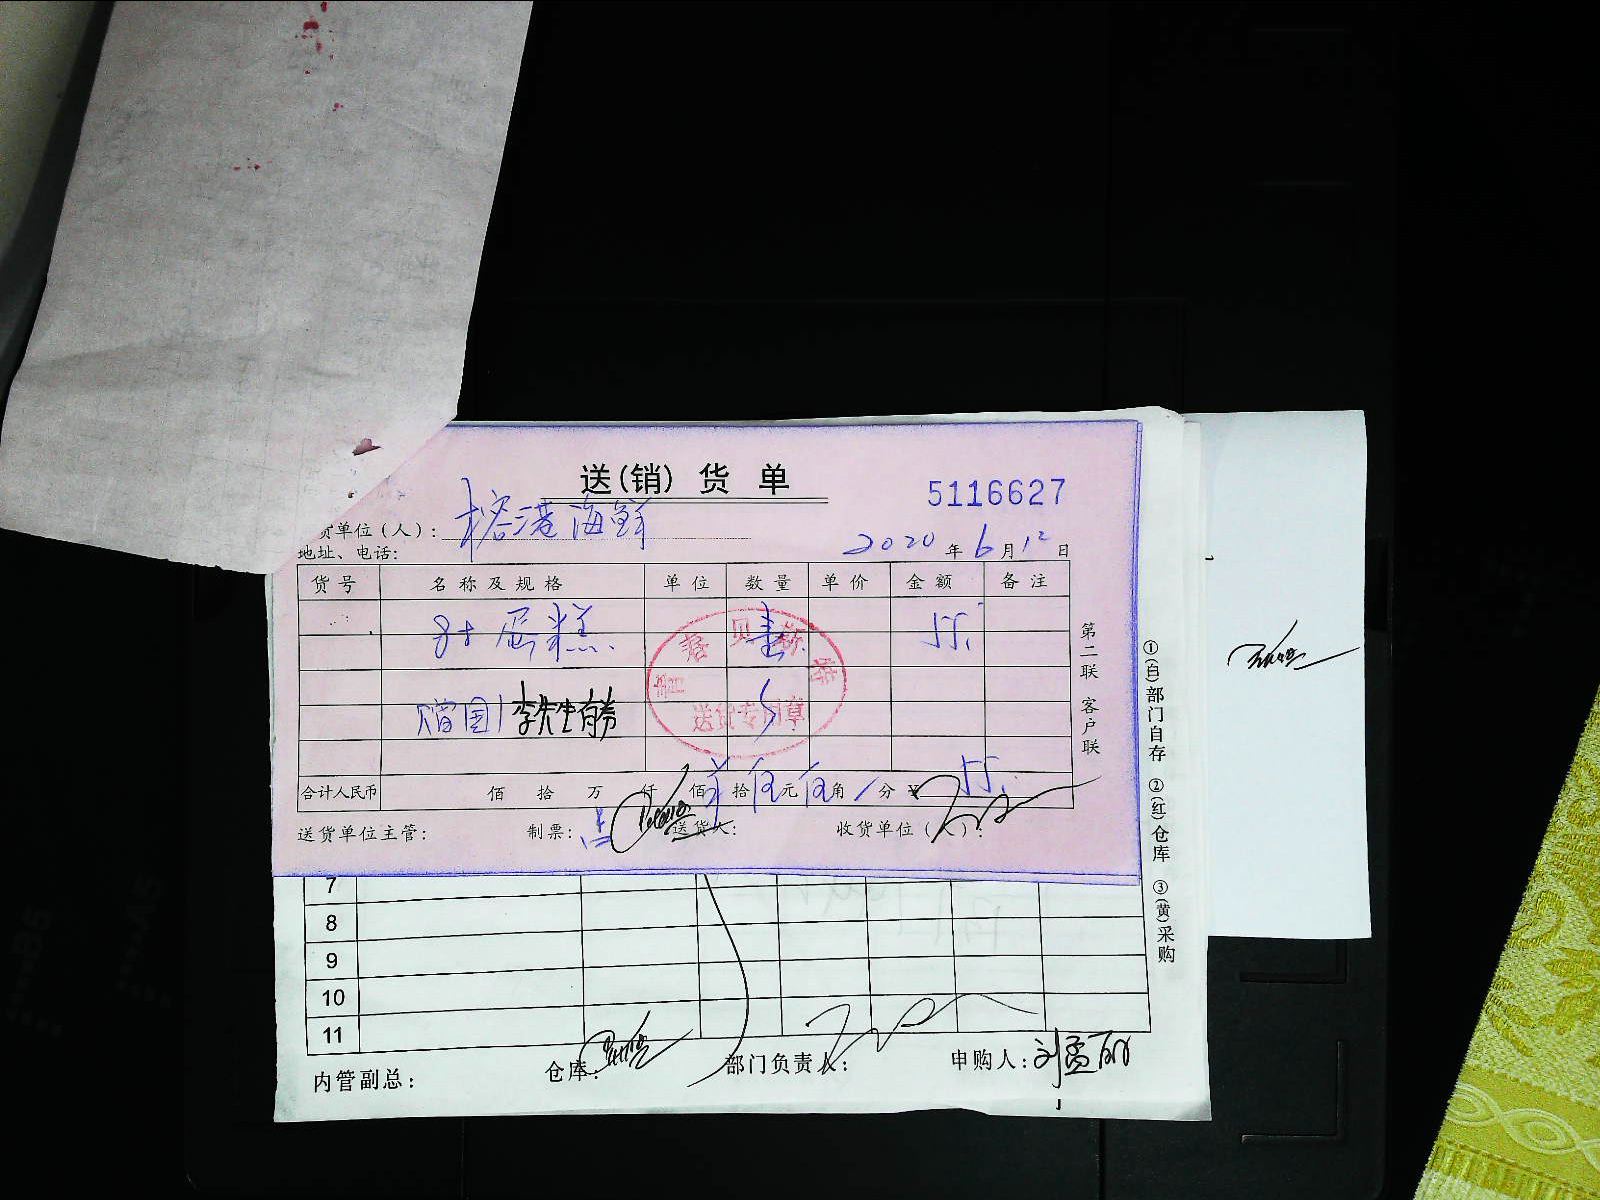 送(销)货单
5116627
货单位(人): 榕港海鲜
地址、电话:
2020年6月12日
货号 名称及规格 单位 数量 单价 金额 备注
8寸蛋糕. 55.
赠国 李先生有券
送货专用章
合计人民币 佰 拾 万 仟 佰 拾 伍元 角 分 ¥ 55.
送货单位主管: 制票: 送货人: 收货单位(人):
第二联 客户联
7
8
9
10
11
内管副总: 仓库: 部门负责人: 申购人:
①(白)部门自存 ②(红)仓库 ③(黄)采购